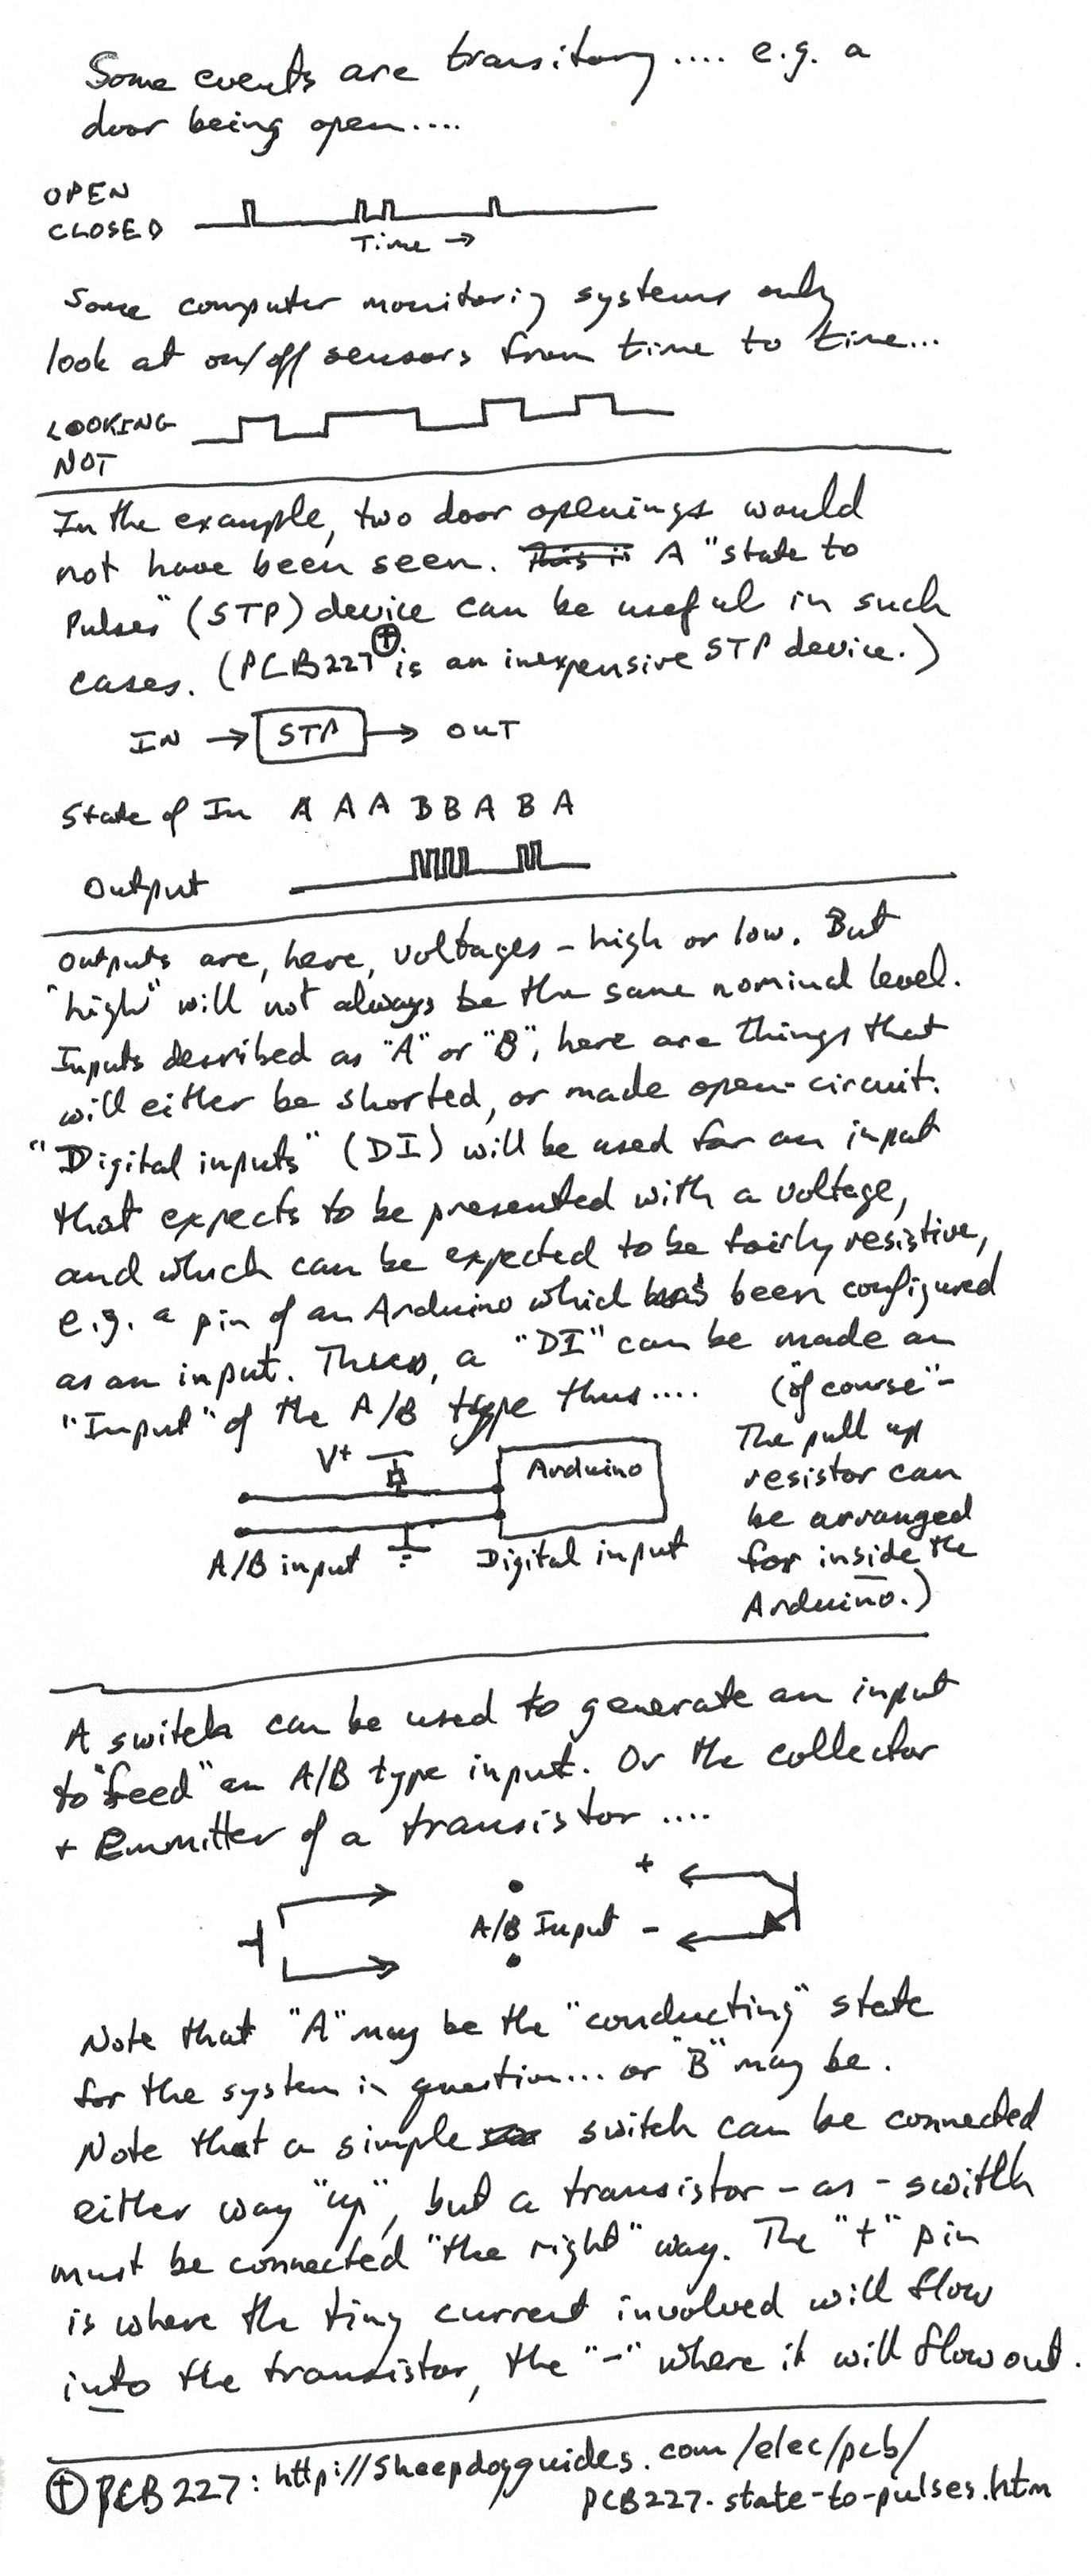 Some events are transitory.... e.g. a
door being open....
OPEN
CLOSED
Time →
Some computer monitorig systems only
look at on/off sensors from time to time...
LOOKING
NOT
In the example, two door openings would
not have been seen. This is A "state to
Pulses" (STP) device can be useful in such
cases. (PCB227⊕ is an inexpensive STP device.)
IN → STP → OUT
State of In A A A B B A B A
Output
Outputs are, here, voltages - high or low. But
"high" will not always be the same nominal level.
Inputs desribed as "A" or "B", here are things that
will either be shorted, or made open-circuit.
"Digital inputs" (DI) will be used for an input
that expects to be presented with a voltage,
and which can be expected to be fairly resistive,
e.g. a pin of an Arduino which has been configured
as an input. Thus, a "DI" can be made an
"Input" of the A/B type thus....
("of course" -
The pull up
resistor can
be arranged
for inside the
Arduino.)
V+
Arduino
A/B input
Digital input
A switch can be used to generate an input
to "feed" an A/B type input. Or the collector
+ Emmitter of a transistor ....
+
A/B Input -
Note that "A" may be the "conducting" state
for the system in question... or "B" may be.
Note that a simple switch can be connected
either way "up", but a transistor-as-switch
must be connected "the right" way. The "+" pin
is where the tiny current involved will flow
into the transistor, the "-" where it will flow out.
⊕ PCB227: http://sheepdogguides.com/elec/pcb/
PCB227-state-to-pulses.htm